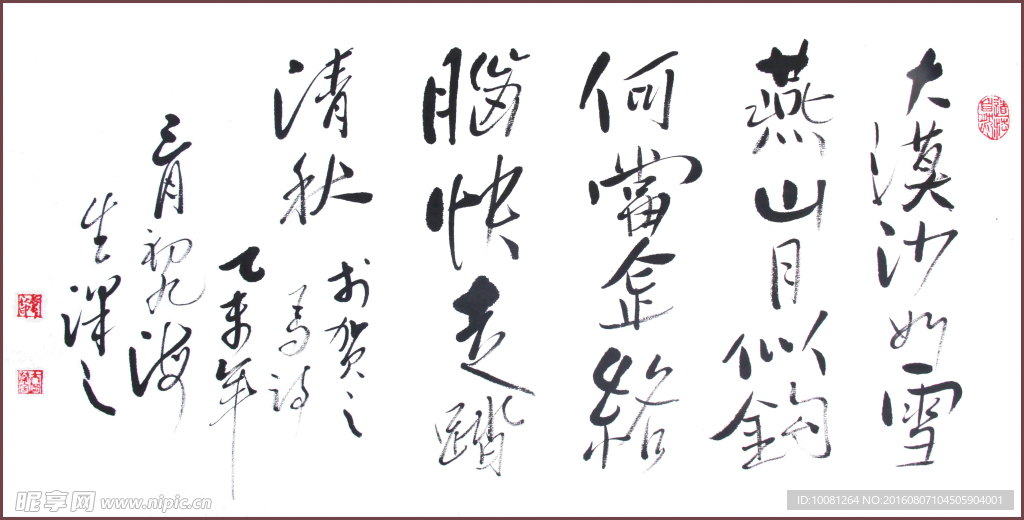 大漠沙如雪
燕山月似鈎
何當金絡
腦快走踏
清秋
賀之
馬詩
乙未年
三月初九海
生
昵享网 www.nipic.cn
ID:10081264 NO:20160807104505904001